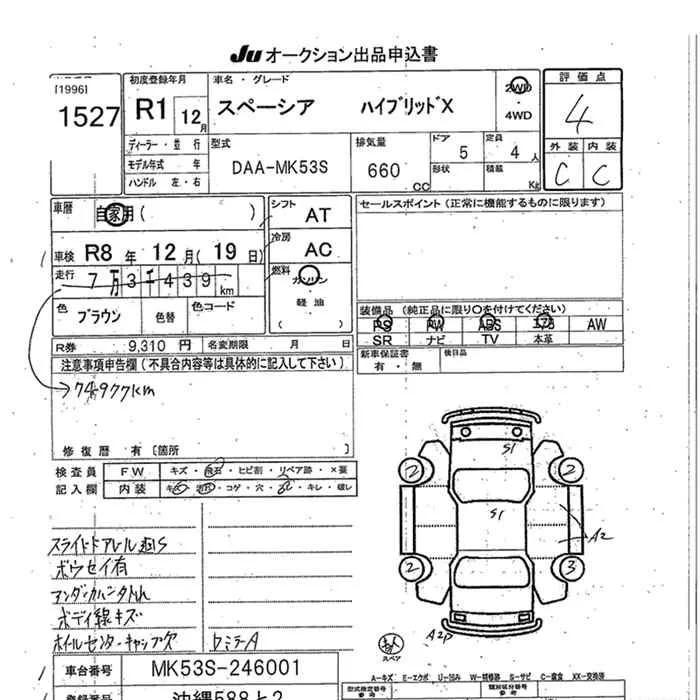 Ju オークション出品申込書
[1996]
1527
初度登録年月
R1 12月
車名・グレード
スペーシア ハイブリッドX
2WD
・
4WD
評価点
4
外装 内装
C C
ディーラー・並行
モデル年式 年
ハンドル 左・右
型式
DAA-MK53S
排気量
660 CC
ドア
5
形状
定員
4人
積載
Kg
車歴
自家用( )
シフト AT
セールスポイント(正常に機能するものに限ります)
車検 R8年 12月(19日)
冷房 AC
走行 7万3千439km
燃料 ガソリン
・
軽油
( )
色 ブラウン 色替 色コード
装備品(純正品に限り〇を付けてください)
PS PW ABS エアB AW
SR ナビ TV 本革
R券 9,310円 名変期限 月 日
新車保証書
有・無
後日品
注意事項申告欄(不具合内容等は具体的に記入して下さい)
→74977km
修復歴 有[箇所 ]
検査員
記入欄
FW キズ・飛石・ヒビ割・リペア跡・×要
内装 キズ・汚れ・コゲ・穴・スレ・キレ・破レ
ボウセイ有
ボディ線キズ
ホイルセンターキャップ欠
S1
S1
2 2
2 3
A2
A2P
スペア
車台番号 MK53S-246001
登録番号 沖縄588と2
A-キズ E-エクボ U-凹み W-補修跡 S-サビ C-腐食 XX-交換済
型式指定番号
類別区分番号